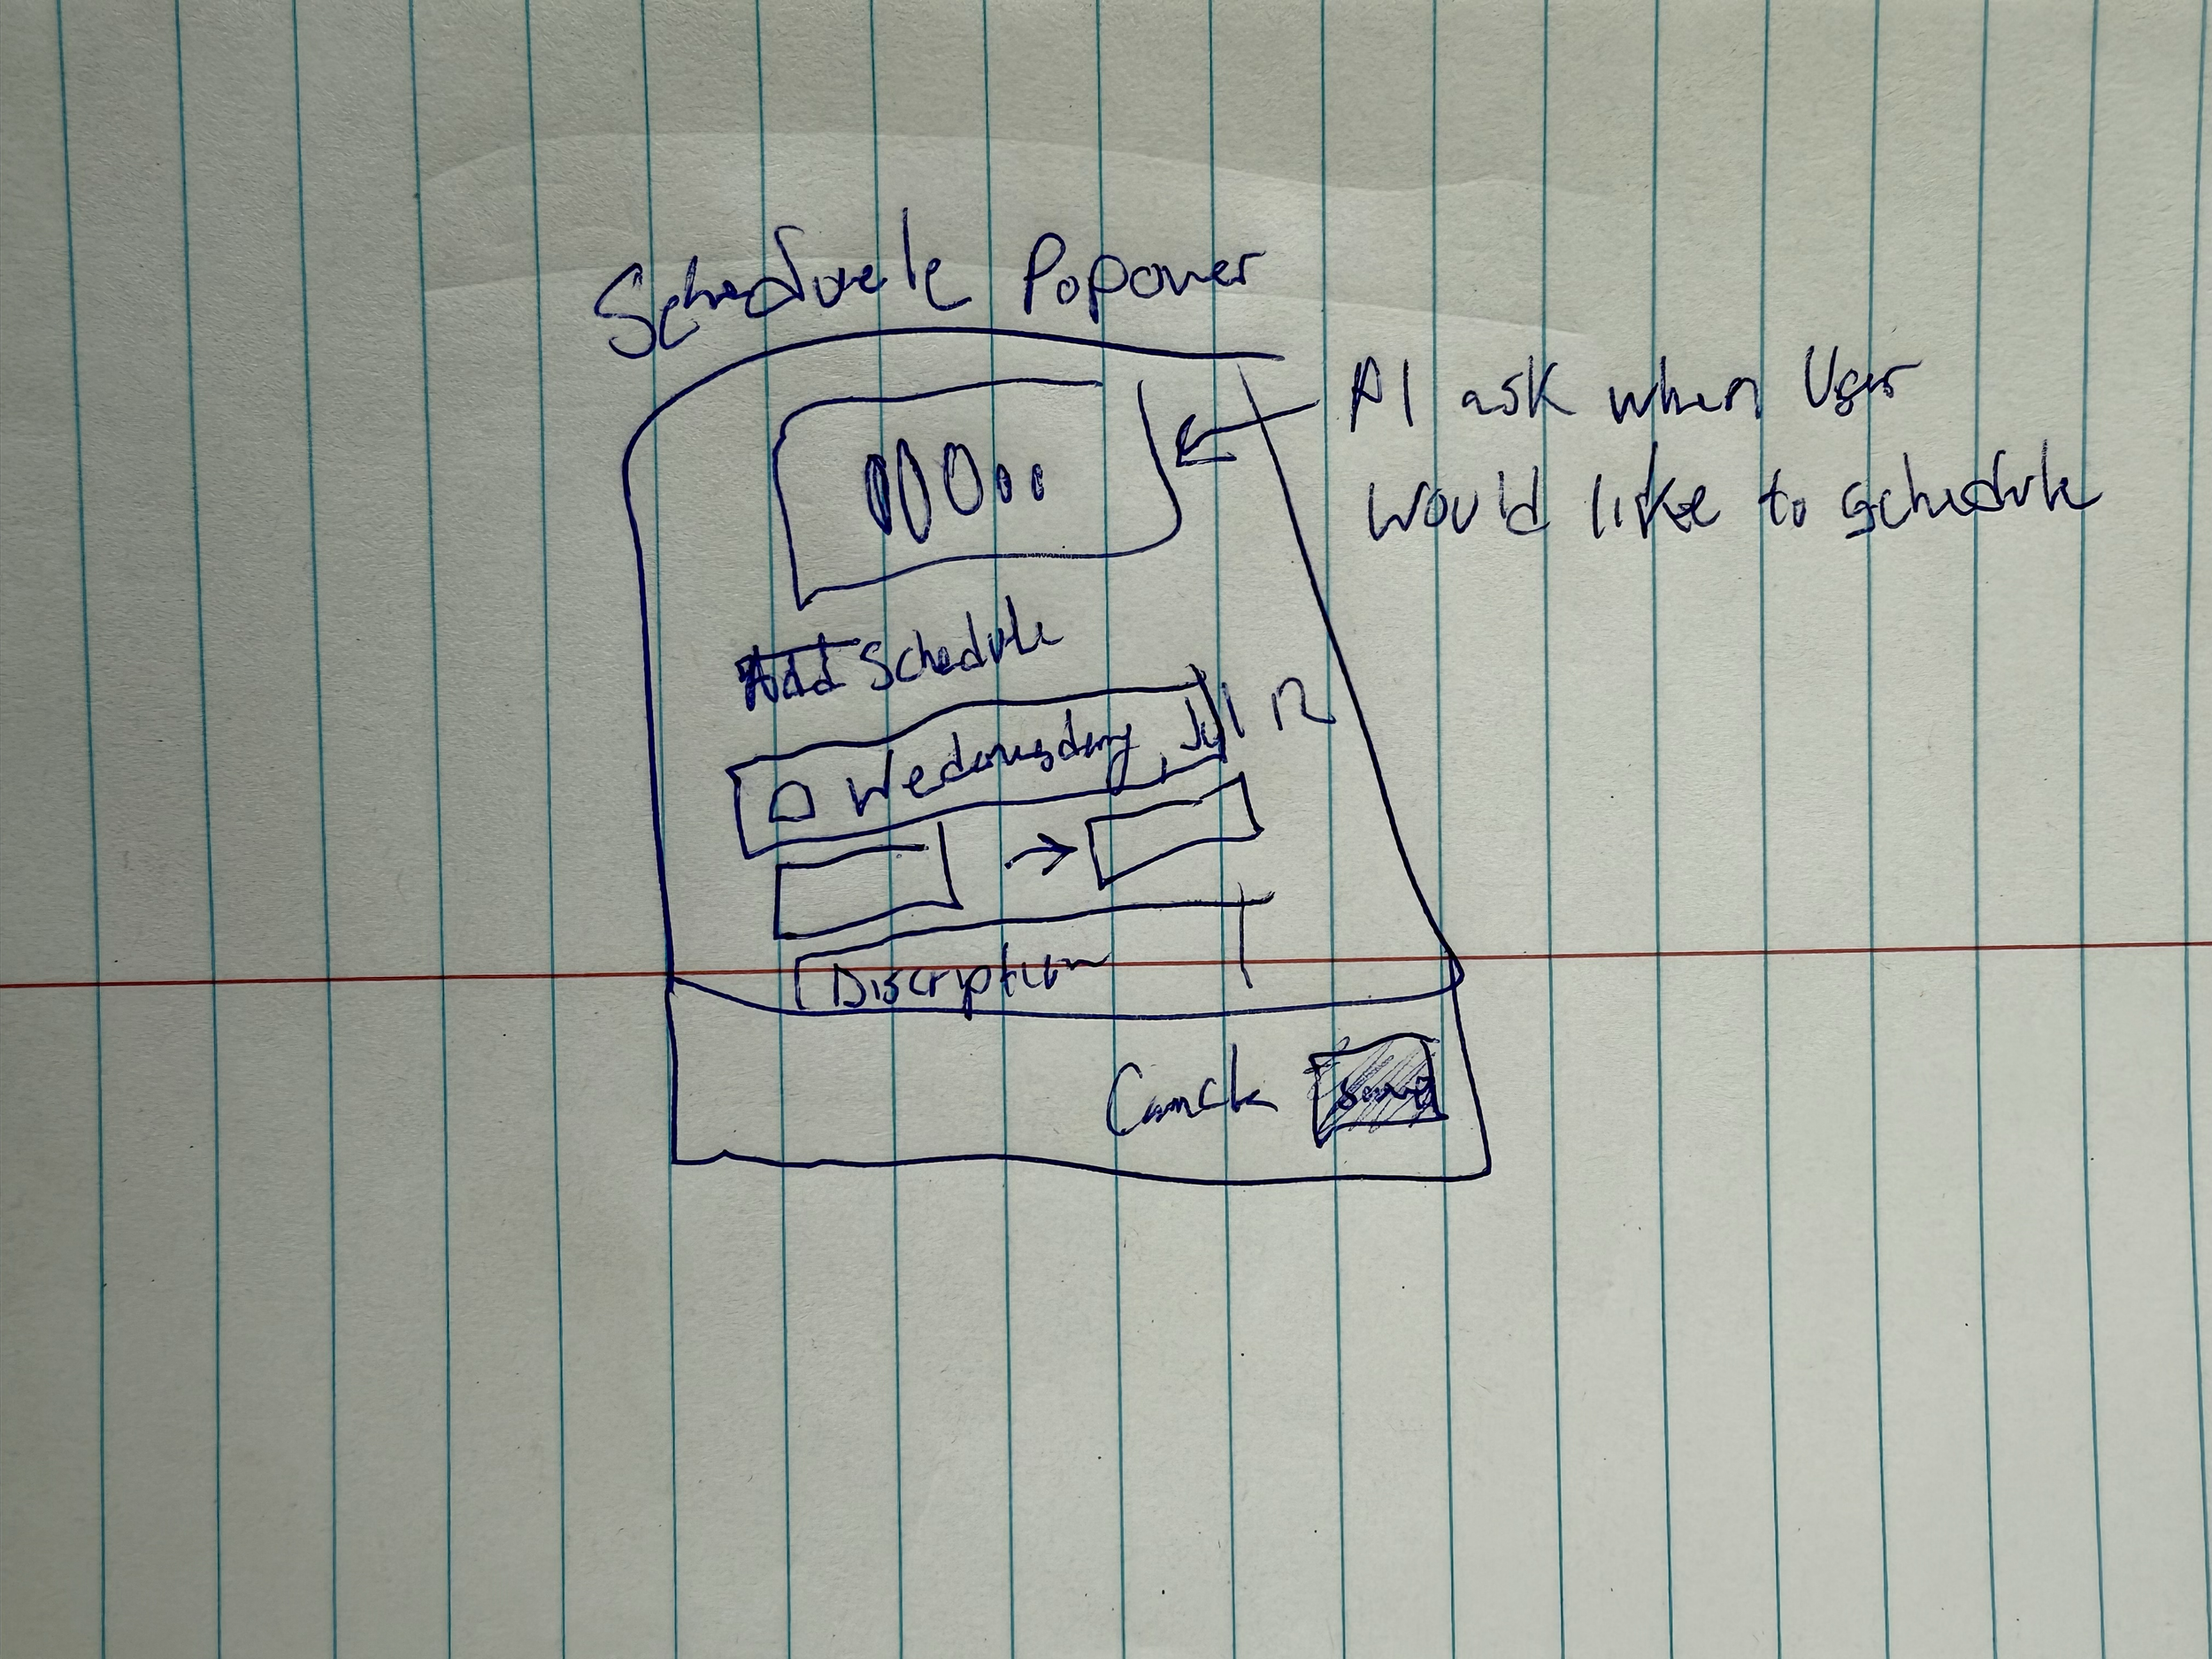 Schedule Popover
AI ask when User
would like to schedule
Add Schedule
Wedenusday, Jul 12
Discription
Cancle